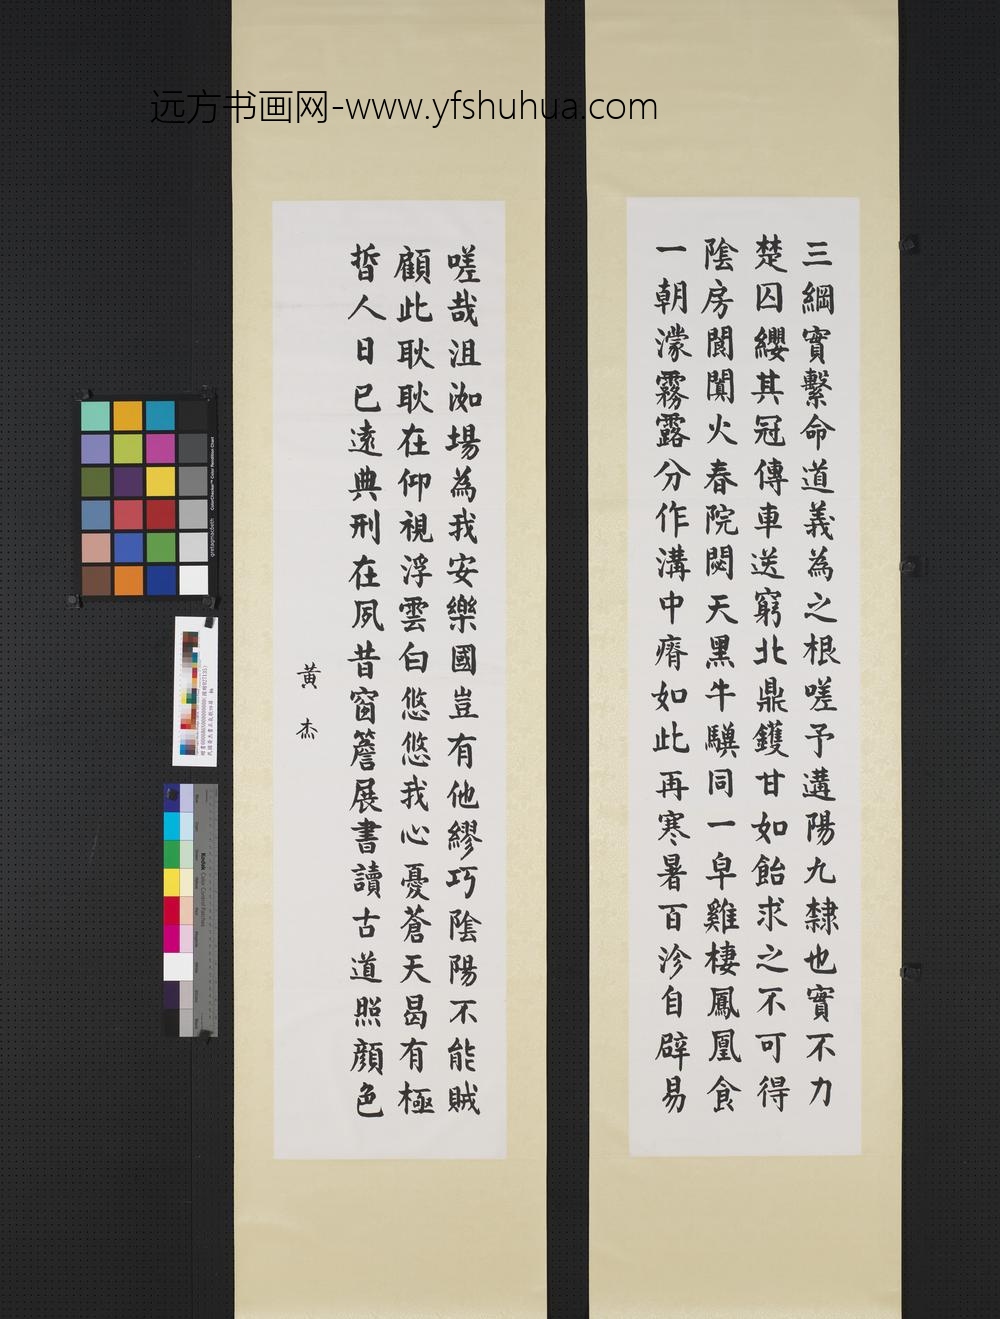 远方书画网-www.yfshuhua.com
三綱實繫命道義為之根嗟予遘陽九隸也實不力
楚囚纓其冠傳車送窮北鼎鑊甘如飴求之不可得
陰房闃闃火春院閟天黑牛驥同一皁雞棲鳳凰食
一朝濛霧露分作溝中瘠如此再寒暑百沴自辟易
嗟哉沮洳場為我安樂國豈有他繆巧陰陽不能賊
顧此耿耿在仰視浮雲白悠悠我心憂蒼天曷有極
哲人日已遠典刑在夙昔窗簷展書讀古道照顏色
黃杰